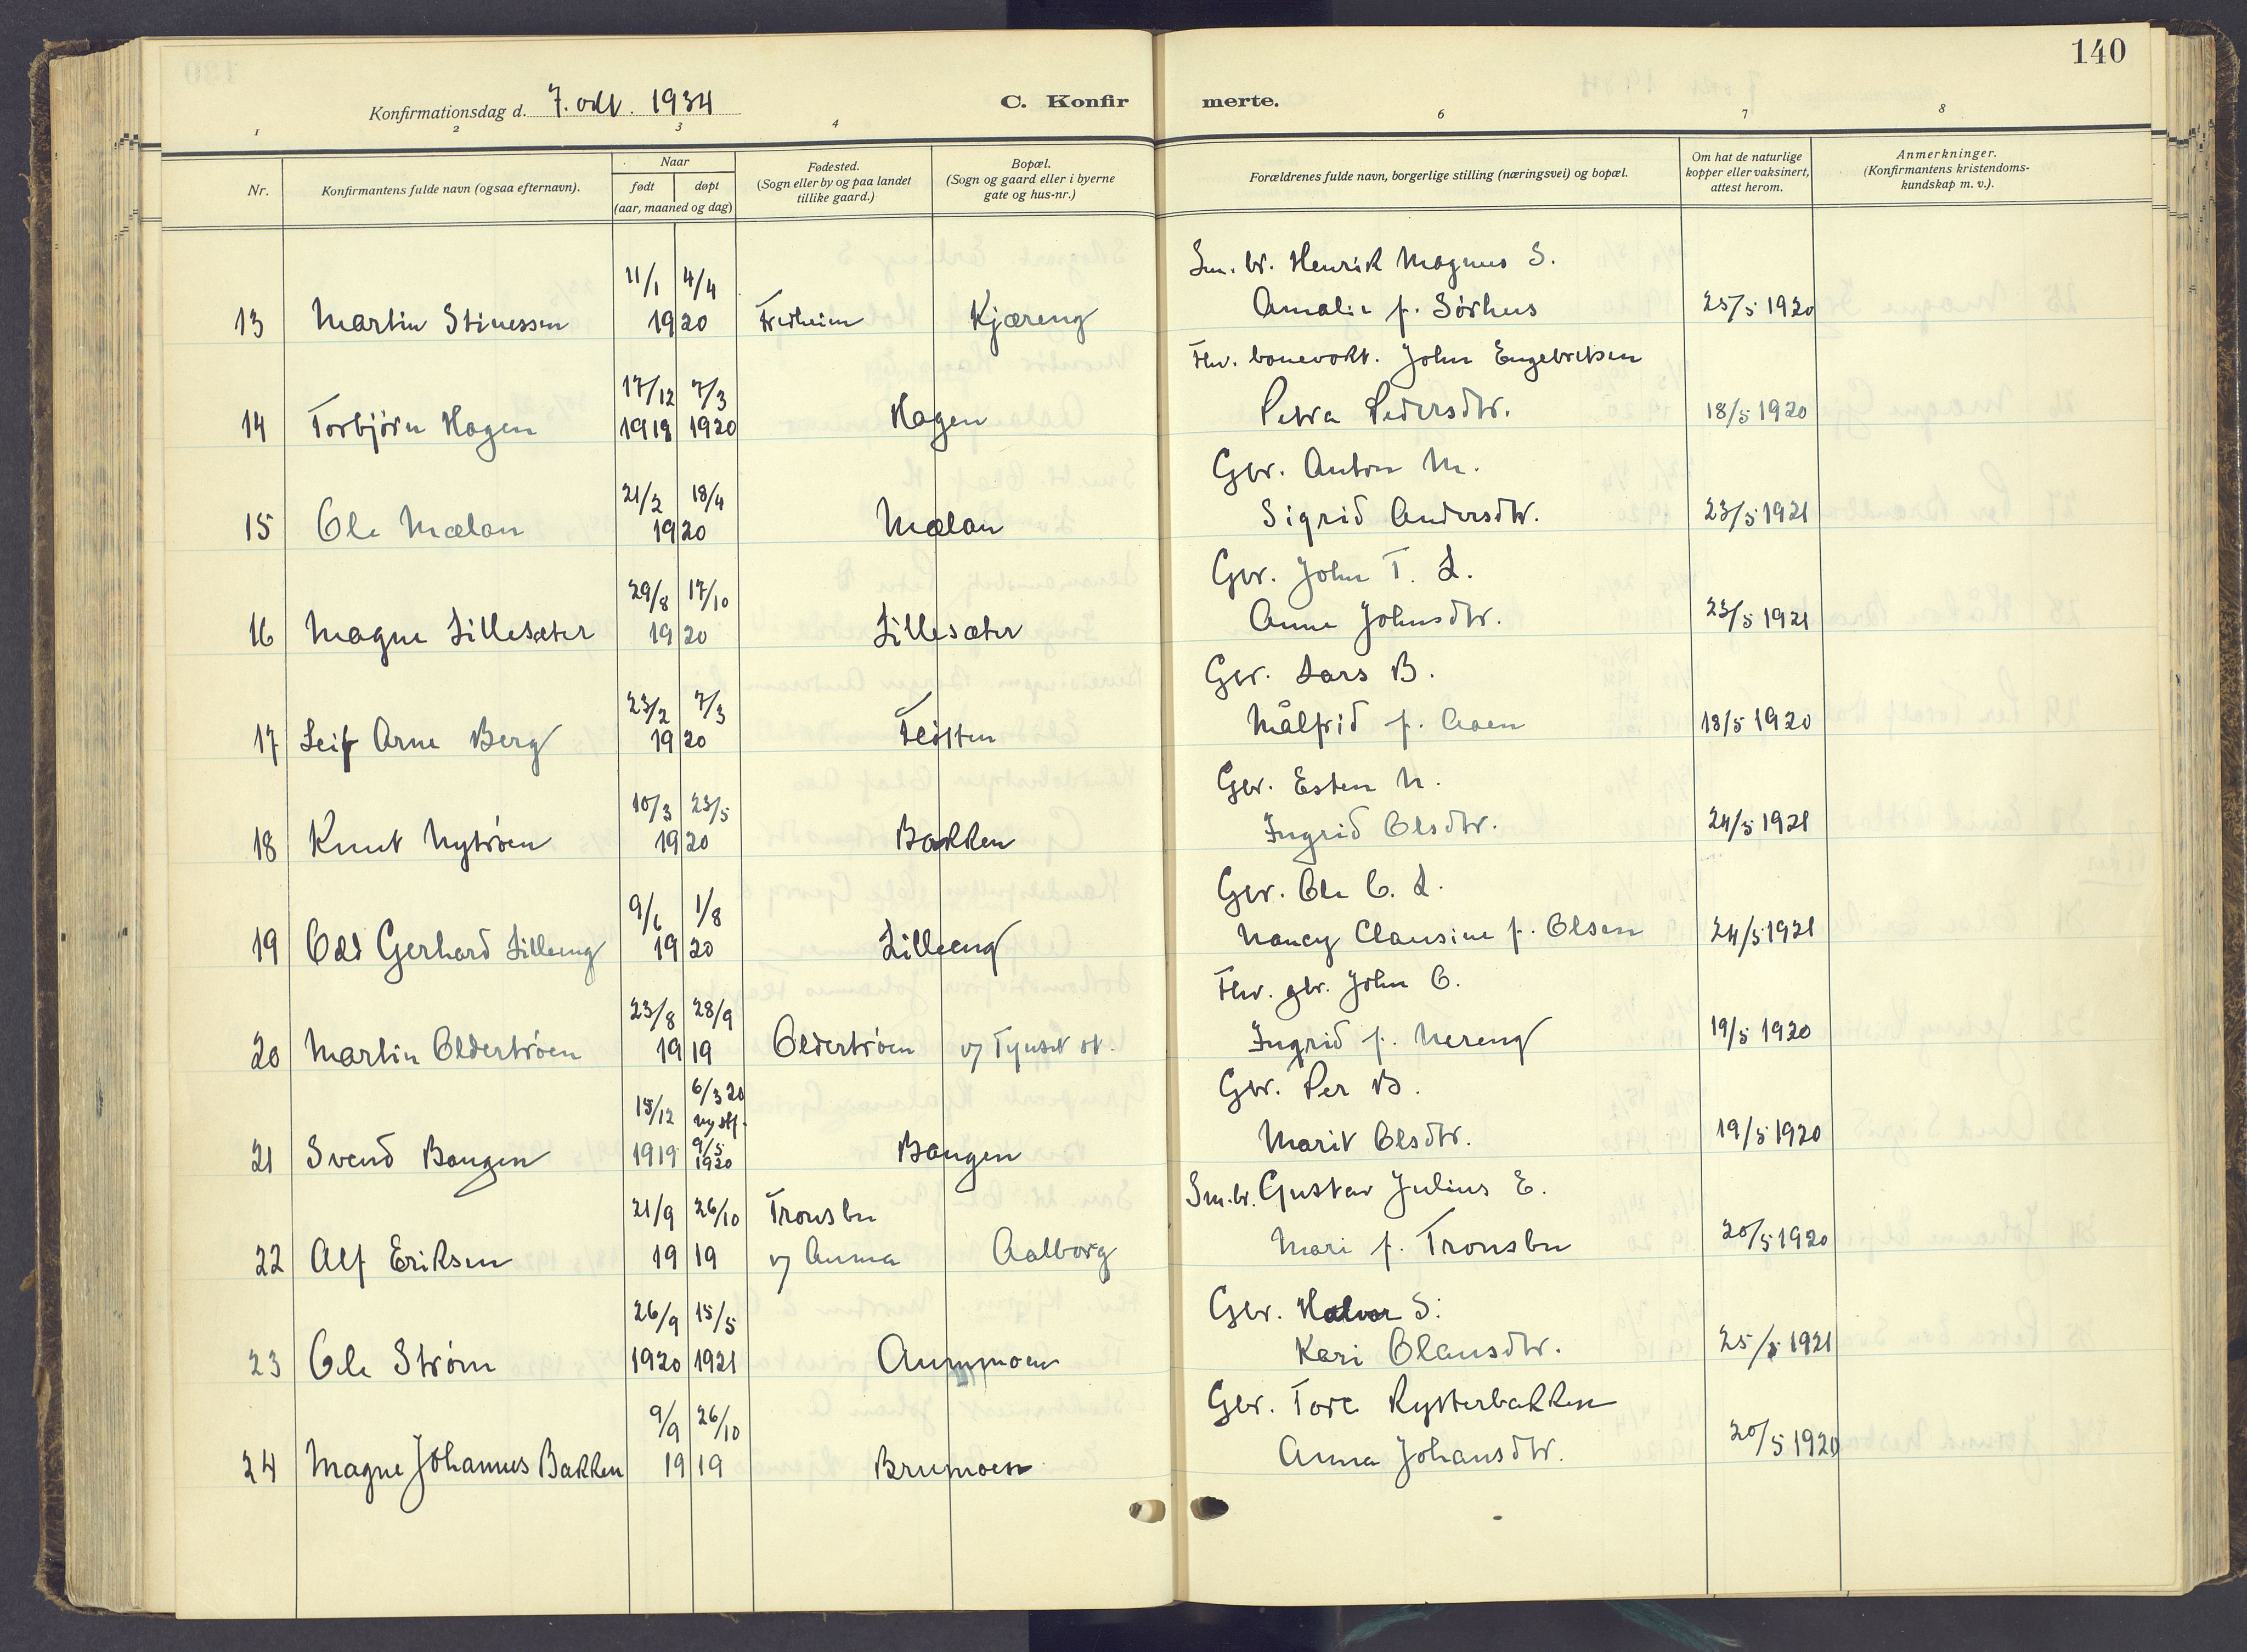 140
Konfirmationsdag d. 7. okt. 1934
C. Konfirmerte.
1 2 3 4 6 7 8
Nr.
Konfirmantens fulde navn (ogsaa efternavn).
Naar
født døpt
(aar, maaned og dag)
Fødested.
(Sogn eller by og paa landet
tillike gaard.)
Bopæl.
(Sogn og gaard eller i byerne
gate og hus-nr.)
Forældrenes fulde navn, borgerlige stilling (næringsvei) og bopæl.
Om hat de naturlige
kopper eller vaksinert,
attest herom.
Anmerkninger.
(Konfirmantens kristendoms-
kundskap m. v.).
11/1 4/4 Sm. br. Henrik Magnus S.
13 Martin Stinessen 1920 Kjæreng Amalie f. Sørhus 25/5 1920
17/12 7/3 Fhv. banevokt. John Engebretsen
14 Torbjørn Hagen 1919 1920 Hagen Petra Pedersdtr. 18/5 1920
21/2 18/4 Gbr. Anton M.
15 Ole Mælan 1920 Mælan Sigrid Andersdtr. 23/5 1921
29/8 17/10 Gbr. John T. L.
16 Magne Lillesæter 1920 Lillesæter Anne Johnsdtr. 23/5 1921
23/2 7/3 Gbr. Lars B.
17 Leif Arne Berg 1920 Flåtten Målfrid f. Aaen 18/5 1920
10/3 23/5 Gbr. Esten N.
18 Knut Nytrøen 1920 Bakken Ingrid Olsdtr. 24/5 1921
9/6 1/8 Gbr. Ole O. L.
19 Odd Gerhard Lilleeng 1920 Lilleeng Nancy Clausine f. Olsen 24/5 1921
23/8 28/9 Fhv. gbr. John O.
20 Martin Oldertrøen 1919 Oldertrøen v/ Tynset st. Ingrid f. Nereng 19/5 1920
15/12 6/3 20 Gbr. Per B.
9/5
21 Svend Bangen 1919 1920 Bangen Marit Olsdtr. 19/5 1920
21/9 26/10 Tronsbu Sm.br. Gustav Julius E.
22 Alf Eriksen 1919 v/ Auma Aalborg Mari f. Tronsbu 20/5 1920
26/9 15/5 Gbr. Halvor S.
23 Ole Strøm 1920 1921 Aummoen Kari Olausdtr. 25/5 1921
9/9 26/10 Gbr. Tore Rytterbakken
24 Magne Johannes Bakken 1919 Brumoen Anna Johansdtr. 20/5 1920